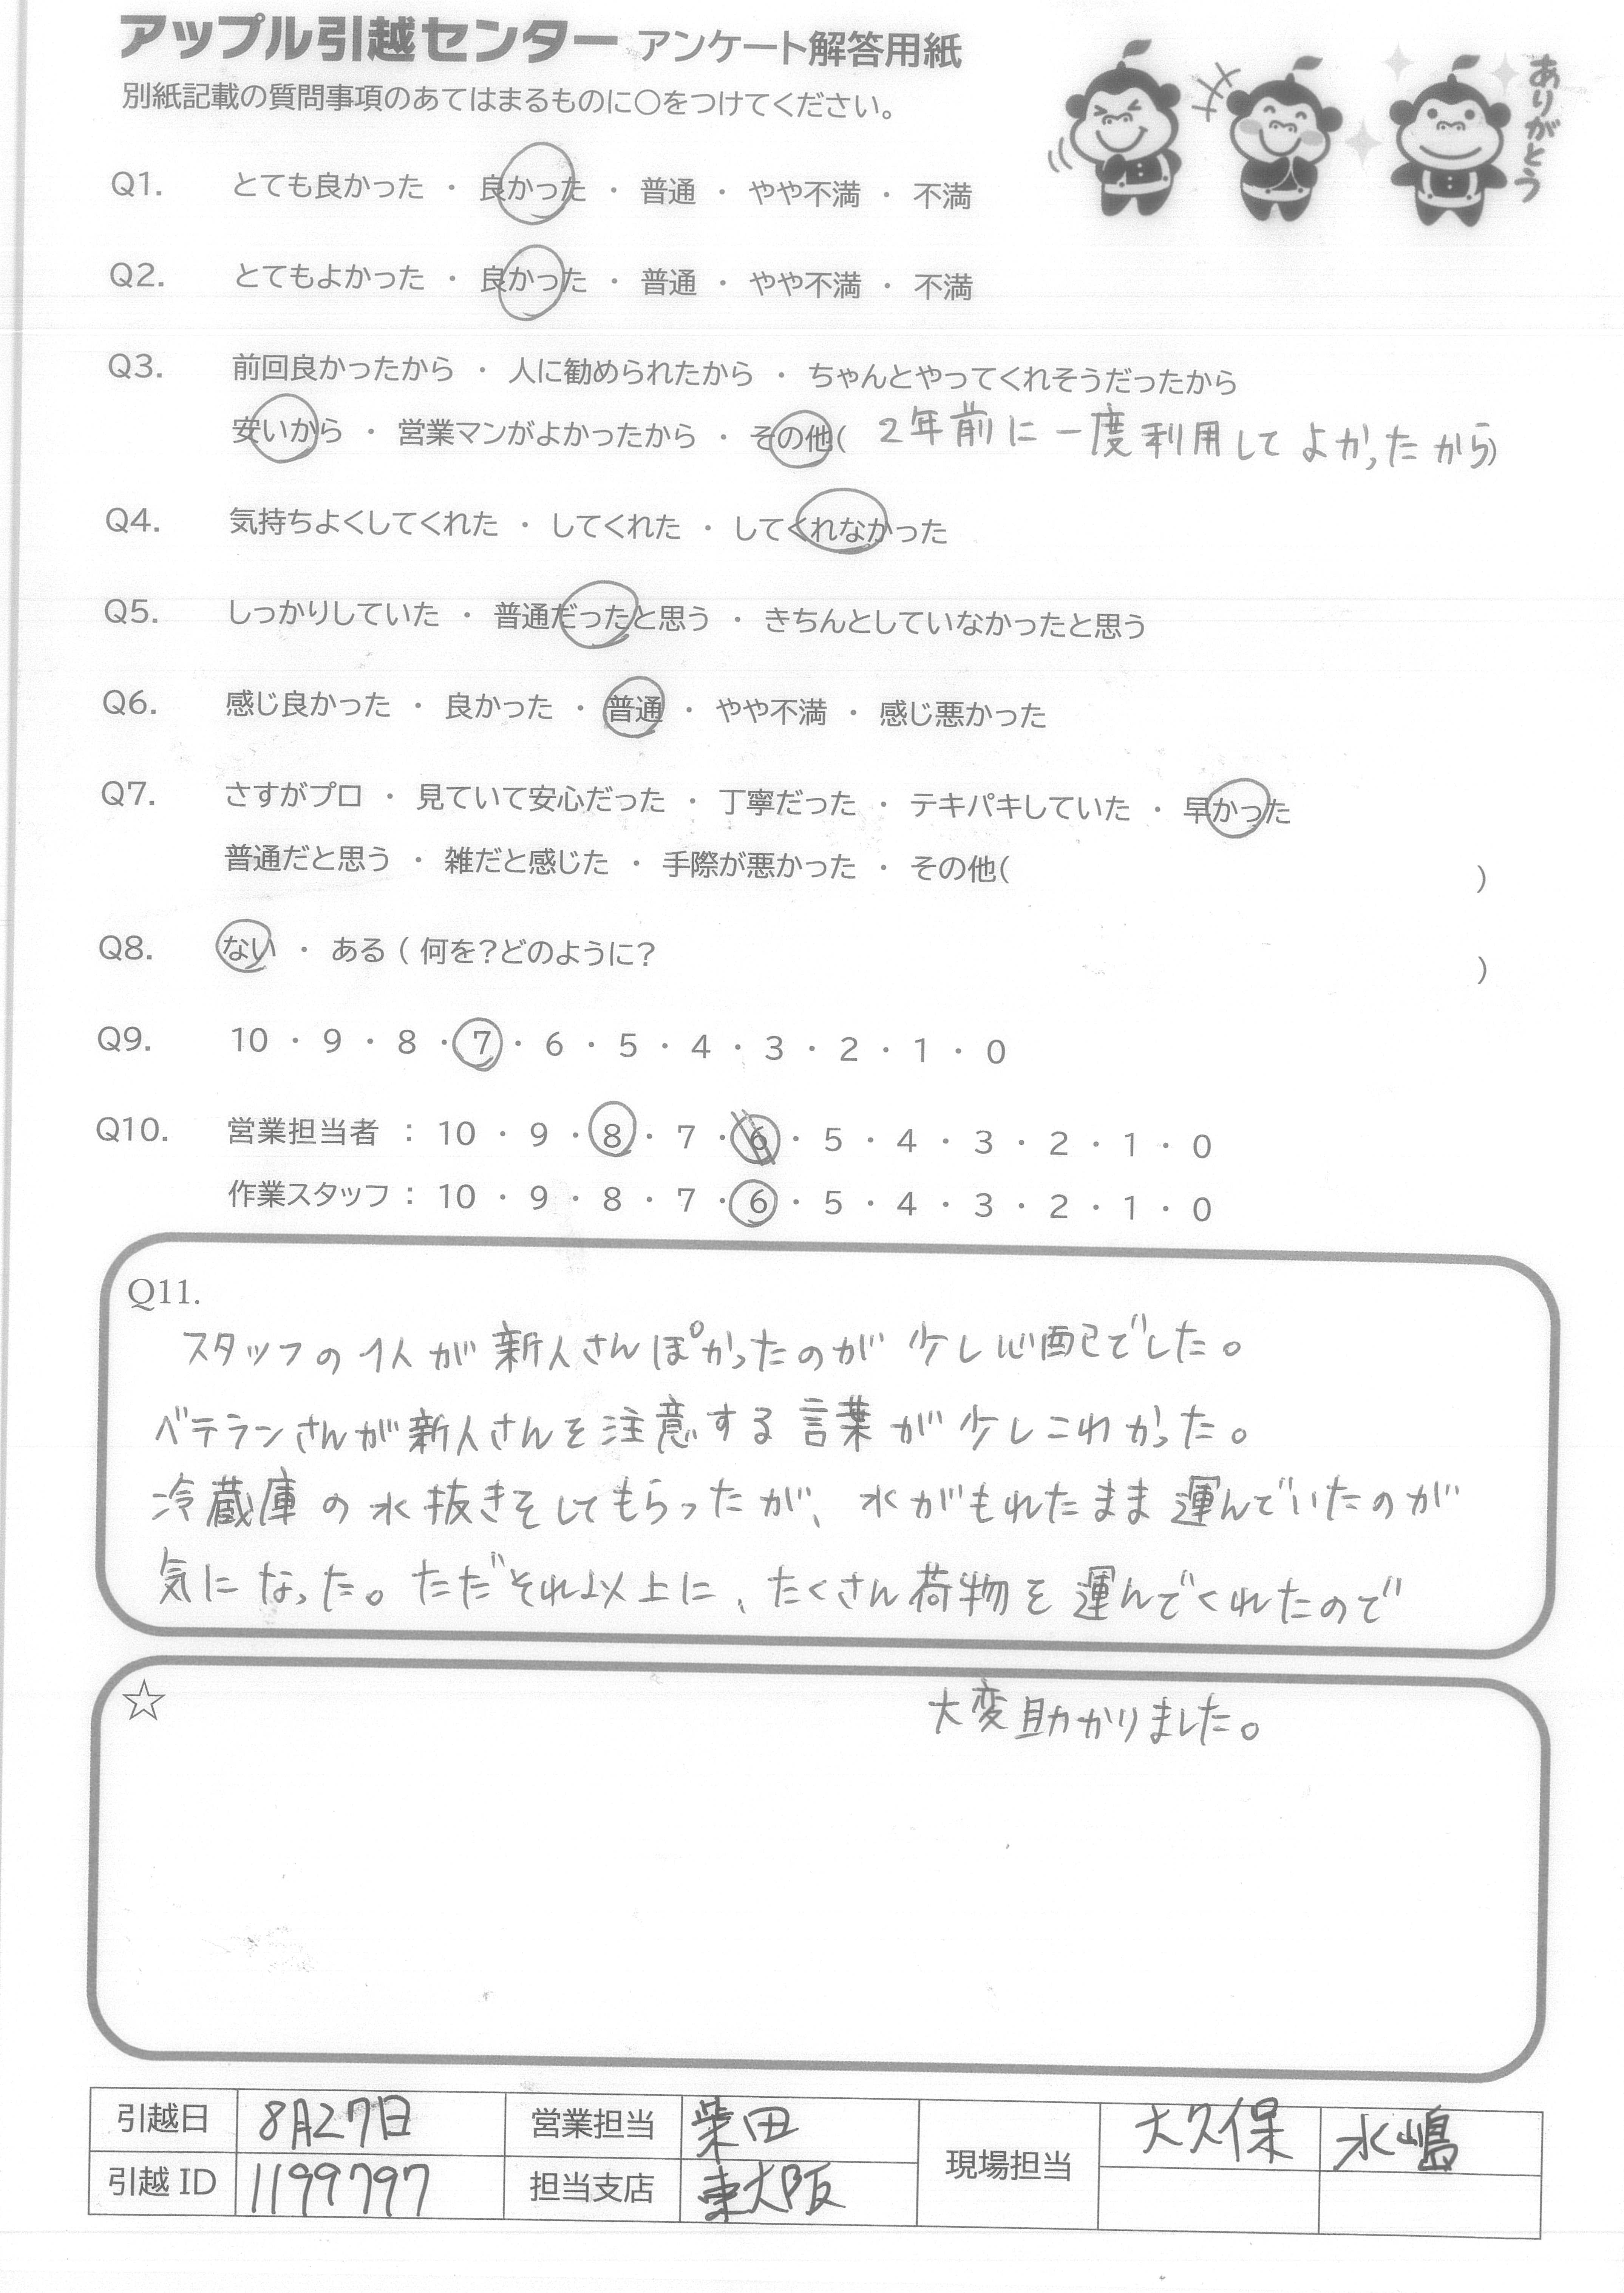 アップル引越センター アンケート解答用紙
別紙記載の質問事項のあてはまるものに○をつけてください。
ありがとう
Q1. とても良かった ・ 良かった ・ 普通 ・ やや不満 ・ 不満
Q2. とてもよかった ・ 良かった ・ 普通 ・ やや不満 ・ 不満
Q3. 前回良かったから ・ 人に勧められたから ・ ちゃんとやってくれそうだったから
安いから ・ 営業マンがよかったから ・ その他( 2年前に一度利用してよかったから)
Q4. 気持ちよくしてくれた ・ してくれた ・ してくれなかった
Q5. しっかりしていた ・ 普通だったと思う ・ きちんとしていなかったと思う
Q6. 感じ良かった ・ 良かった ・ 普通 ・ やや不満 ・ 感じ悪かった
Q7. さすがプロ ・ 見ていて安心だった ・ 丁寧だった ・ テキパキしていた ・ 早かった
普通だと思う ・ 雑だと感じた ・ 手際が悪かった ・ その他( )
Q8. ない ・ ある ( 何を?どのように? )
Q9. 10 ・ 9 ・ 8 ・ 7 ・ 6 ・ 5 ・ 4 ・ 3 ・ 2 ・ 1 ・ 0
Q10. 営業担当者 : 10 ・ 9 ・ 8 ・ 7 ・ 6 ・ 5 ・ 4 ・ 3 ・ 2 ・ 1 ・ 0
作業スタッフ : 10 ・ 9 ・ 8 ・ 7 ・ 6 ・ 5 ・ 4 ・ 3 ・ 2 ・ 1 ・ 0
Q11.
スタッフの1人が新人さんぽかったのが少し心配でした。
ベテランさんが新人さんを注意する言葉が少しこわかった。
冷蔵庫の水抜きをしてもらったが、水がもれたまま運んでいたのが
気になった。ただそれ以上に、たくさん荷物を運んでくれたので
☆ 大変助かりました。
引越日 8月27日 営業担当 柴田 現場担当 大久保 水嶋
引越 ID 1199797 担当支店 東大阪